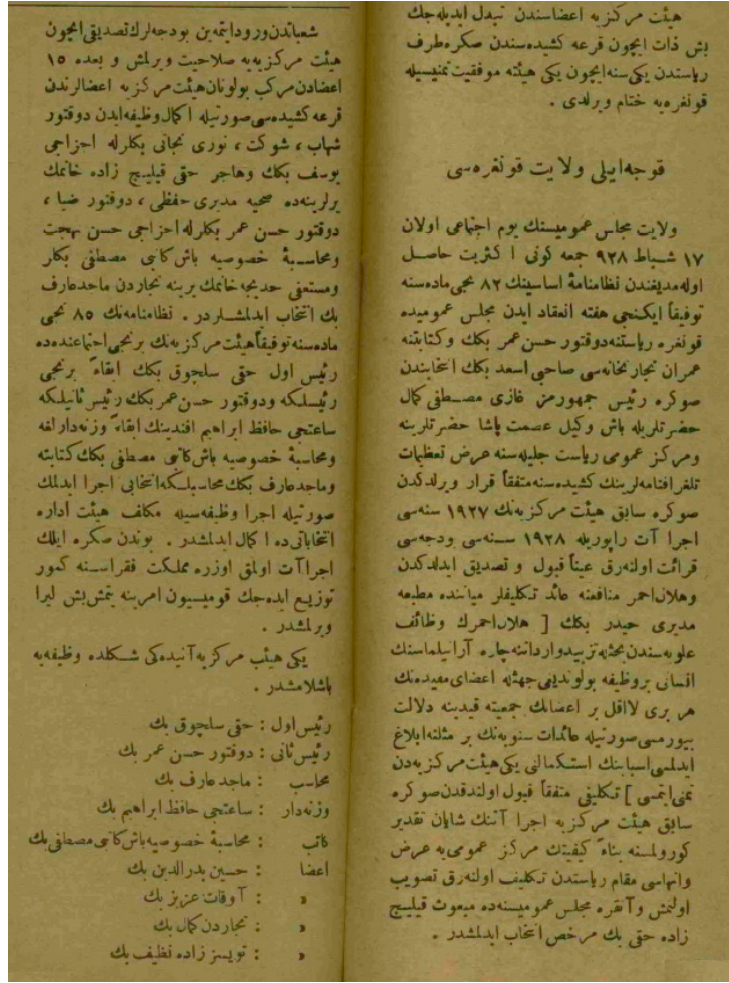 هيئت مركزيه اعضاسندن تبدل ايديله‌جك
بش ذات ايچون قرعه كشيده‌سندن صكره طرف
رياستدن يكى سنه ايچون يكى هيئته موفقيت تمنيسيله
قونغره‌يه ختام ويرلدى .
قوجه‌ايلى ولايت قونغره‌سى
ولايت مجلس عموميسنك يوم اجتماعى اولان
١٧ شباط ٩٢٨ جمعه كونى اكثريت حاصل
اوله‌مديغندن نظامنامهٔ اساسينك ٨٢ نجى ماده‌سنه
توفيقاً ايكنجى هفته انعقاد ايدن مجلس عموميده
قونغره رياستنه دوقتور حسن عمر بكك وكتابتنه
عمران تجارتخانه‌سى صاحبى اسعد بكك انتخابندن
صوكره رئيس جمهورمز غازى مصطفى كمال
حضرتلريله باش وكيل عصمت پاشا حضرتلرينه
ومركز عمومى رياست جليله‌سنه عرض تعظيمات
تلغرافنامه‌لرينك كشيده‌سنه متفقاً قرار ويرلدكدن
صوكره سابق هيئت مركزيه‌نك ١٩٢٧ سنه‌سى
اجراآت راپوريله ١٩٢٨ سنه‌سى بودجه‌سى
قرائت اولنه‌رق عيناً قبول و تصديق ايدلدكدن
وهلال‌احمر منافعنه عائد تكليفلر مياننده مطبعه
مديرى حيدر بكك [ هلال‌احمرك وظائف
علويه‌سندن بحثيه تزييد وارداتنه چاره آرانيلماسنك
انسانى بر وظيفه بولونديغى جهتله اعضاى مفيده‌نك
هر برى لااقل بر اعضانك جمعيته قيدينه دلالت
بيورمسى صورتيله عائدات سنويه‌نك بر مثلنه ابلاغ
ايدلمسى اسبابنك استكمالنى يكى هيئت مركزيه‌دن
تمنى ايتمسى ] تكليفى متفقاً قبول اولندقدن صوكره
سابق هيئت مركزيه اجراآتنك شايان تقدير
كورولمسنه بناءً كيفيتك مركز عمومى‌يه عرض
وانهاسى مقام رياستدن تكليف اولنه‌رق تصويب
اولنمش وآنقره مجلس عموميسنه‌ده مبعوث قيليج
زاده حقى بك مرخص انتخاب ايدلمشدر .
شعباتدن ورود ايتمه‌ين بودجه‌لرك تصديقى ايچون
هيئت مركزيه‌يه صلاحيت ويرلمش و بعده ١٥
اعضادن مركب بولونان هيئت مركزيه اعضالرندن
قرعه كشيده‌سى صورتيله اكمال وظيفه ايدن دوقتور
شهاب ، شوكت ، نورى نجاتى بكلرله اجزاجى
يوسف بكك وهاجر حقى قيليج زاده خانمك
يرلرينه‌ده صحيه مديرى حفظى ، دوقتور ضيا ،
دوقتور حسن عمر بكلرله اجزاجى حسن بهجت
ومحاسبهٔ خصوصيه باش كاتبى مصطفى بكلر
ومستعفى خديجه خانمك يرينه تجاردن ماجد عارف
بك انتخاب ايدلمشلردر . نظامنامه‌نك ٨٥ نجى
ماده‌سنه توفيقاً هيئت مركزيه‌نك برنجى اجتماعنده‌ده
رئيس اول حقى سلجوق بكك ابقاءً برنجى
رئيسلكه ودوقتور حسن عمر بكك رئيس ثانيلكه
ساعتجى حافظ ابراهيم افندينك ابقاءً وزنه‌دارلغه
ومحاسبهٔ خصوصيه باش كاتبى مصطفى بكك كتابته
وماجد عارف بكك محاسبلكه انتخابى اجرا ايدلمك
صورتيله اجرا وظيفه‌سيله مكلف هيئت اداره
انتخاباتى‌ده اكمال ايدلمشدر . بوندن صكره ايلك
اجراآت اولمق اوزره مملكت فقراسنه كمور
توزيع ايده‌جك قوميسيون امرينه يتمش بش ليرا
ويرلمشدر .
يكى هيئت مركزيه آتيده‌كى شكلده وظيفه‌يه
باشلامشدر .
رئيس اول : حقى سلجوق بك
رئيس ثانى : دوقتور حسن عمر بك
محاسب : ماجد عارف بك
وزنه‌دار : ساعتجى حافظ ابراهيم بك
كاتب : محاسبهٔ خصوصيه باش كاتبى مصطفى بك
اعضا : حسين بدرالدين بك
» : آوقات عزيز بك
» : تجاردن كمال بك
» : توپسز زاده نظيف بك